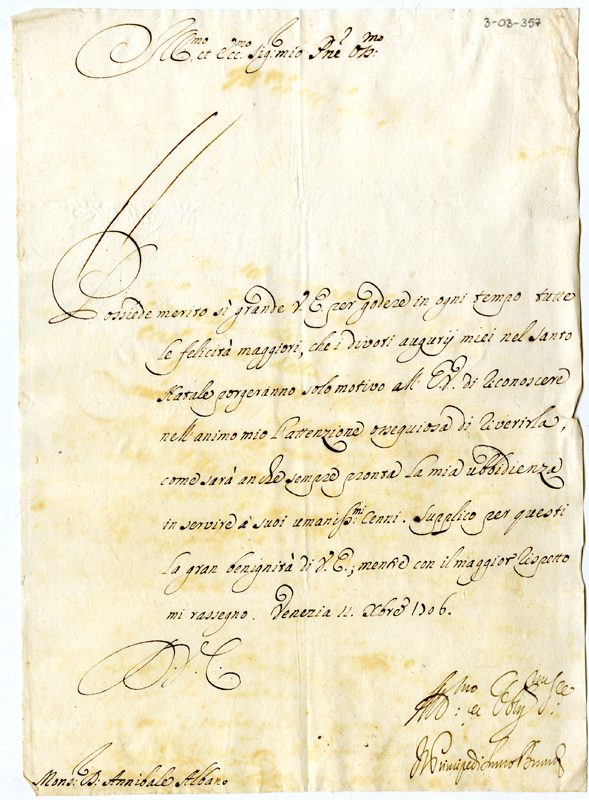 3-03-357
Ill.mo et Ecc.mo Sig.r mio Pne Oss.mo
Possiede merito sì grande V. E. per godere in ogni tempo tutte
le felicità maggiori, che i divoti augurij miei nel Santo
Natale porgeranno solo motivo all' E.V. di riconoscere
nell'animo mio l'attenzione ossequiosa di riverirla,
come sarà anche sempre pronta la mia ubbidienza
in servire à suoi umaniss.mi Cenni. Supplico per questi
la gran benignità di V. E.; mentre con il maggior rispetto
mi rassegno. Venezia 11. Xbre 1706.
Di V. E.
Mons.r D: Annibale Albano